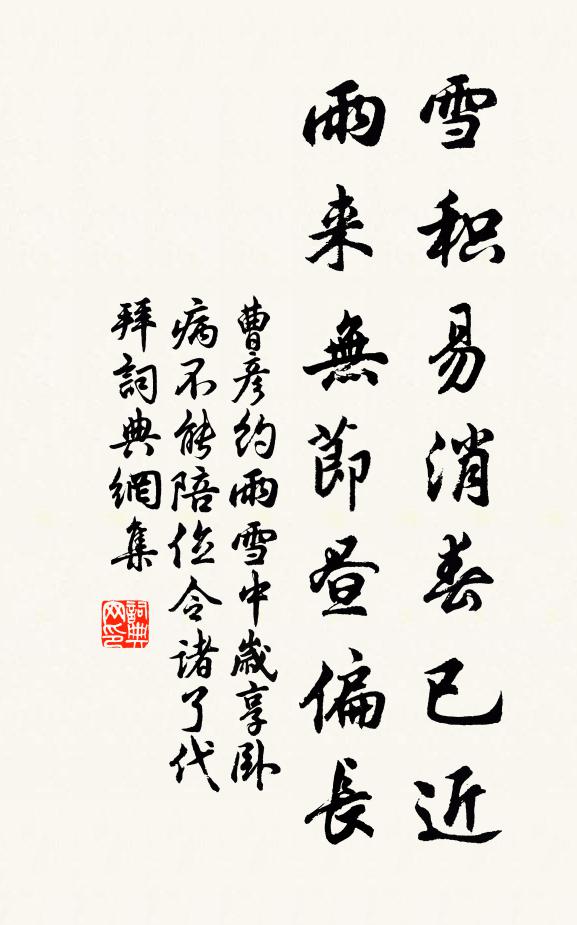 雪积易消春已近
雨来無節昼偏長
曹彦约雨雪中歲享卧
病不能陪位令诸了代
拜詞典網集
詞典网印